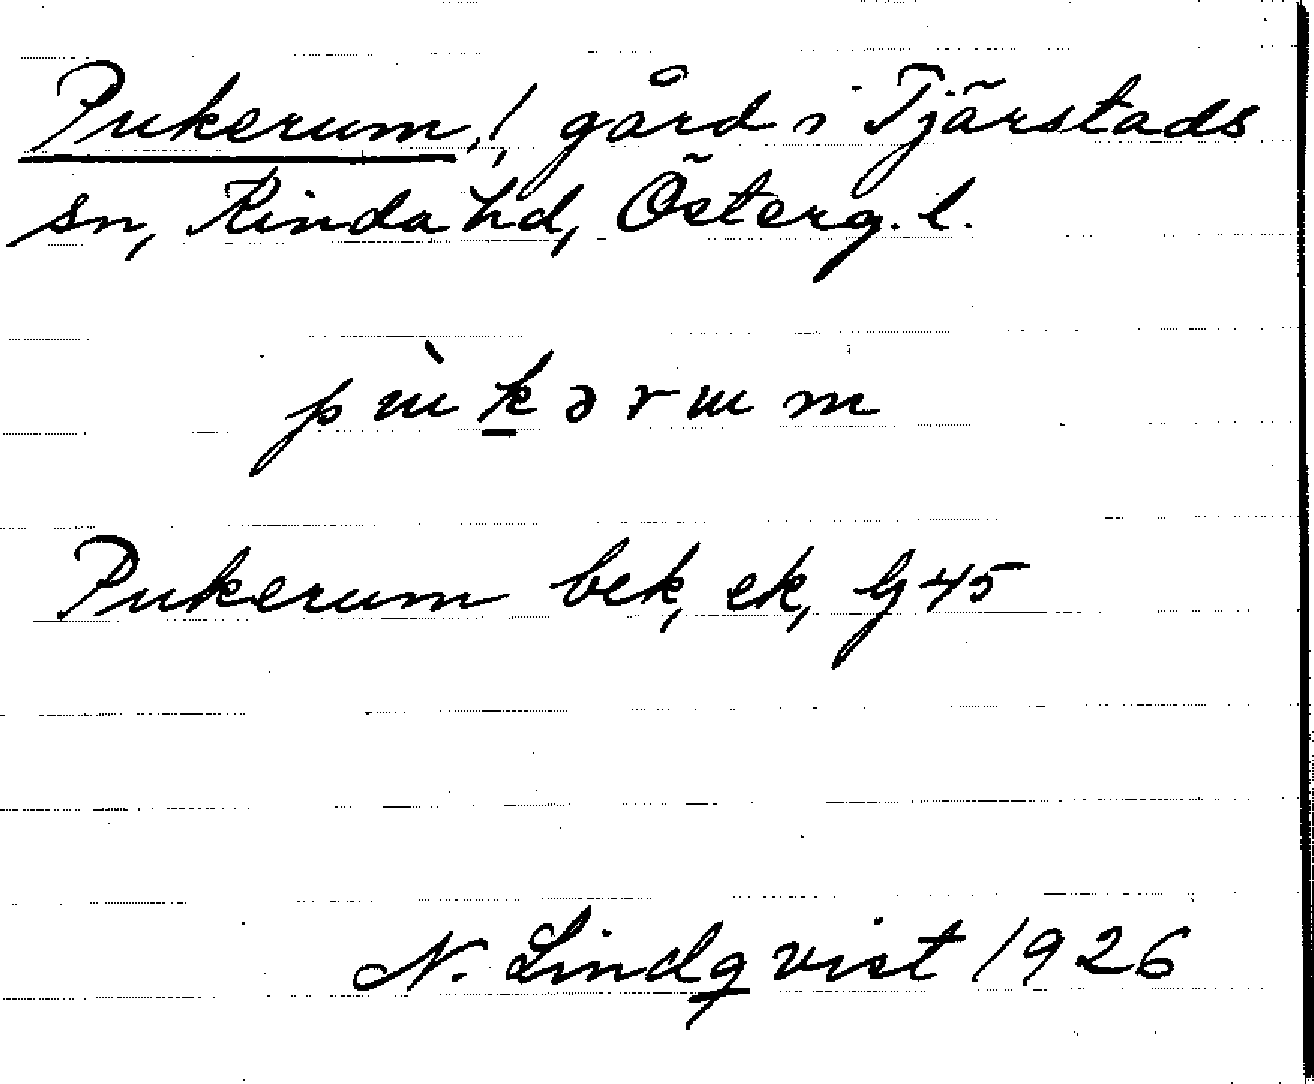 Pukerum,!, gård i Tjärstads
sn, Kinda hd, Österg. l.
pɯ̀kərɯm
Pukerum bek, ek, G45
N. Lindqvist 1926